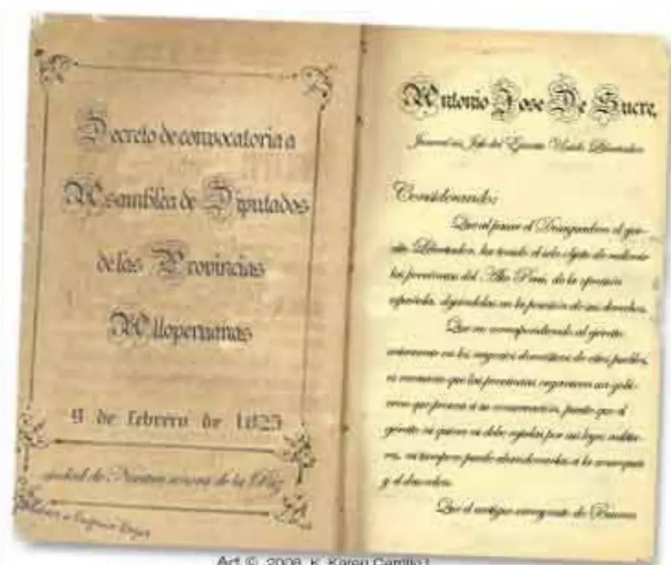 Decreto de convocatoria a
Asamblea de Diputados
de las Provincias
Altoperuanas
9 de febrero de 1825
ciudad de Nuestra señora de la Paz
Antonio Jose De Sucre,
General en Jefe del Ejercito Unido Libertador
Considerando:
Que al pasar el Desaguadero el ejér-
cito Libertador, ha tenido el solo objeto de redimir
las provincias del Alto Perú, de la opresión
española, dejándolas en la posesión de sus derechos.
Que no correspondiendo al ejército
intervenir en los negocios domésticos de estos pueblos,
es necesario que las provincias organicen un gobi-
erno que provea a su conservación, puesto que el
ejército ni quiere ni debe regirlas por sus leyes milita-
res, ni tampoco puede abandonarlas a la anarquía
y el desorden.
Que el antiguo virreynato de Buenos
Art © 2008 K. Karen Carrillo L.